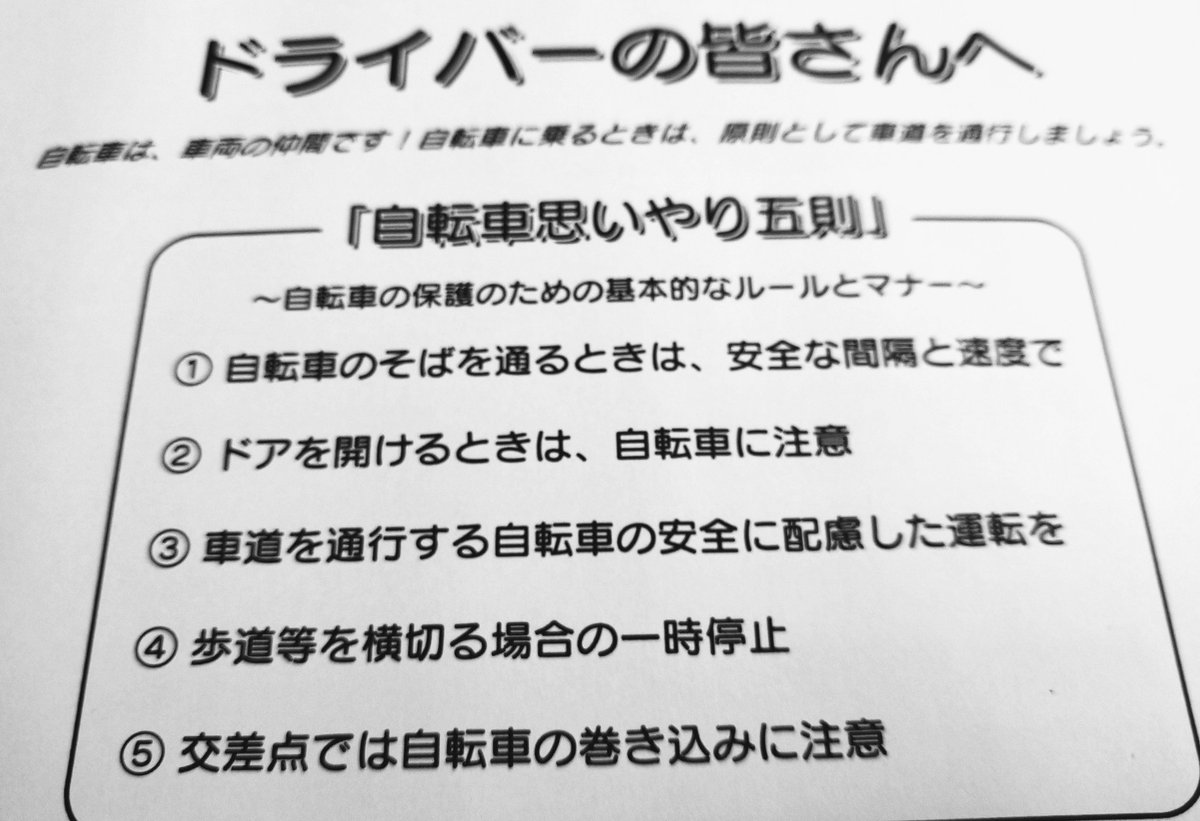 ドライバーの皆さんへ
自転車は、車両の仲間です！自転車に乗るときは、原則として車道を通行しましょう。
「自転車思いやり五則」
～自転車の保護のための基本的なルールとマナー～
① 自転車のそばを通るときは、安全な間隔と速度で
② ドアを開けるときは、自転車に注意
③ 車道を通行する自転車の安全に配慮した運転を
④ 歩道等を横切る場合の一時停止
⑤ 交差点では自転車の巻き込みに注意